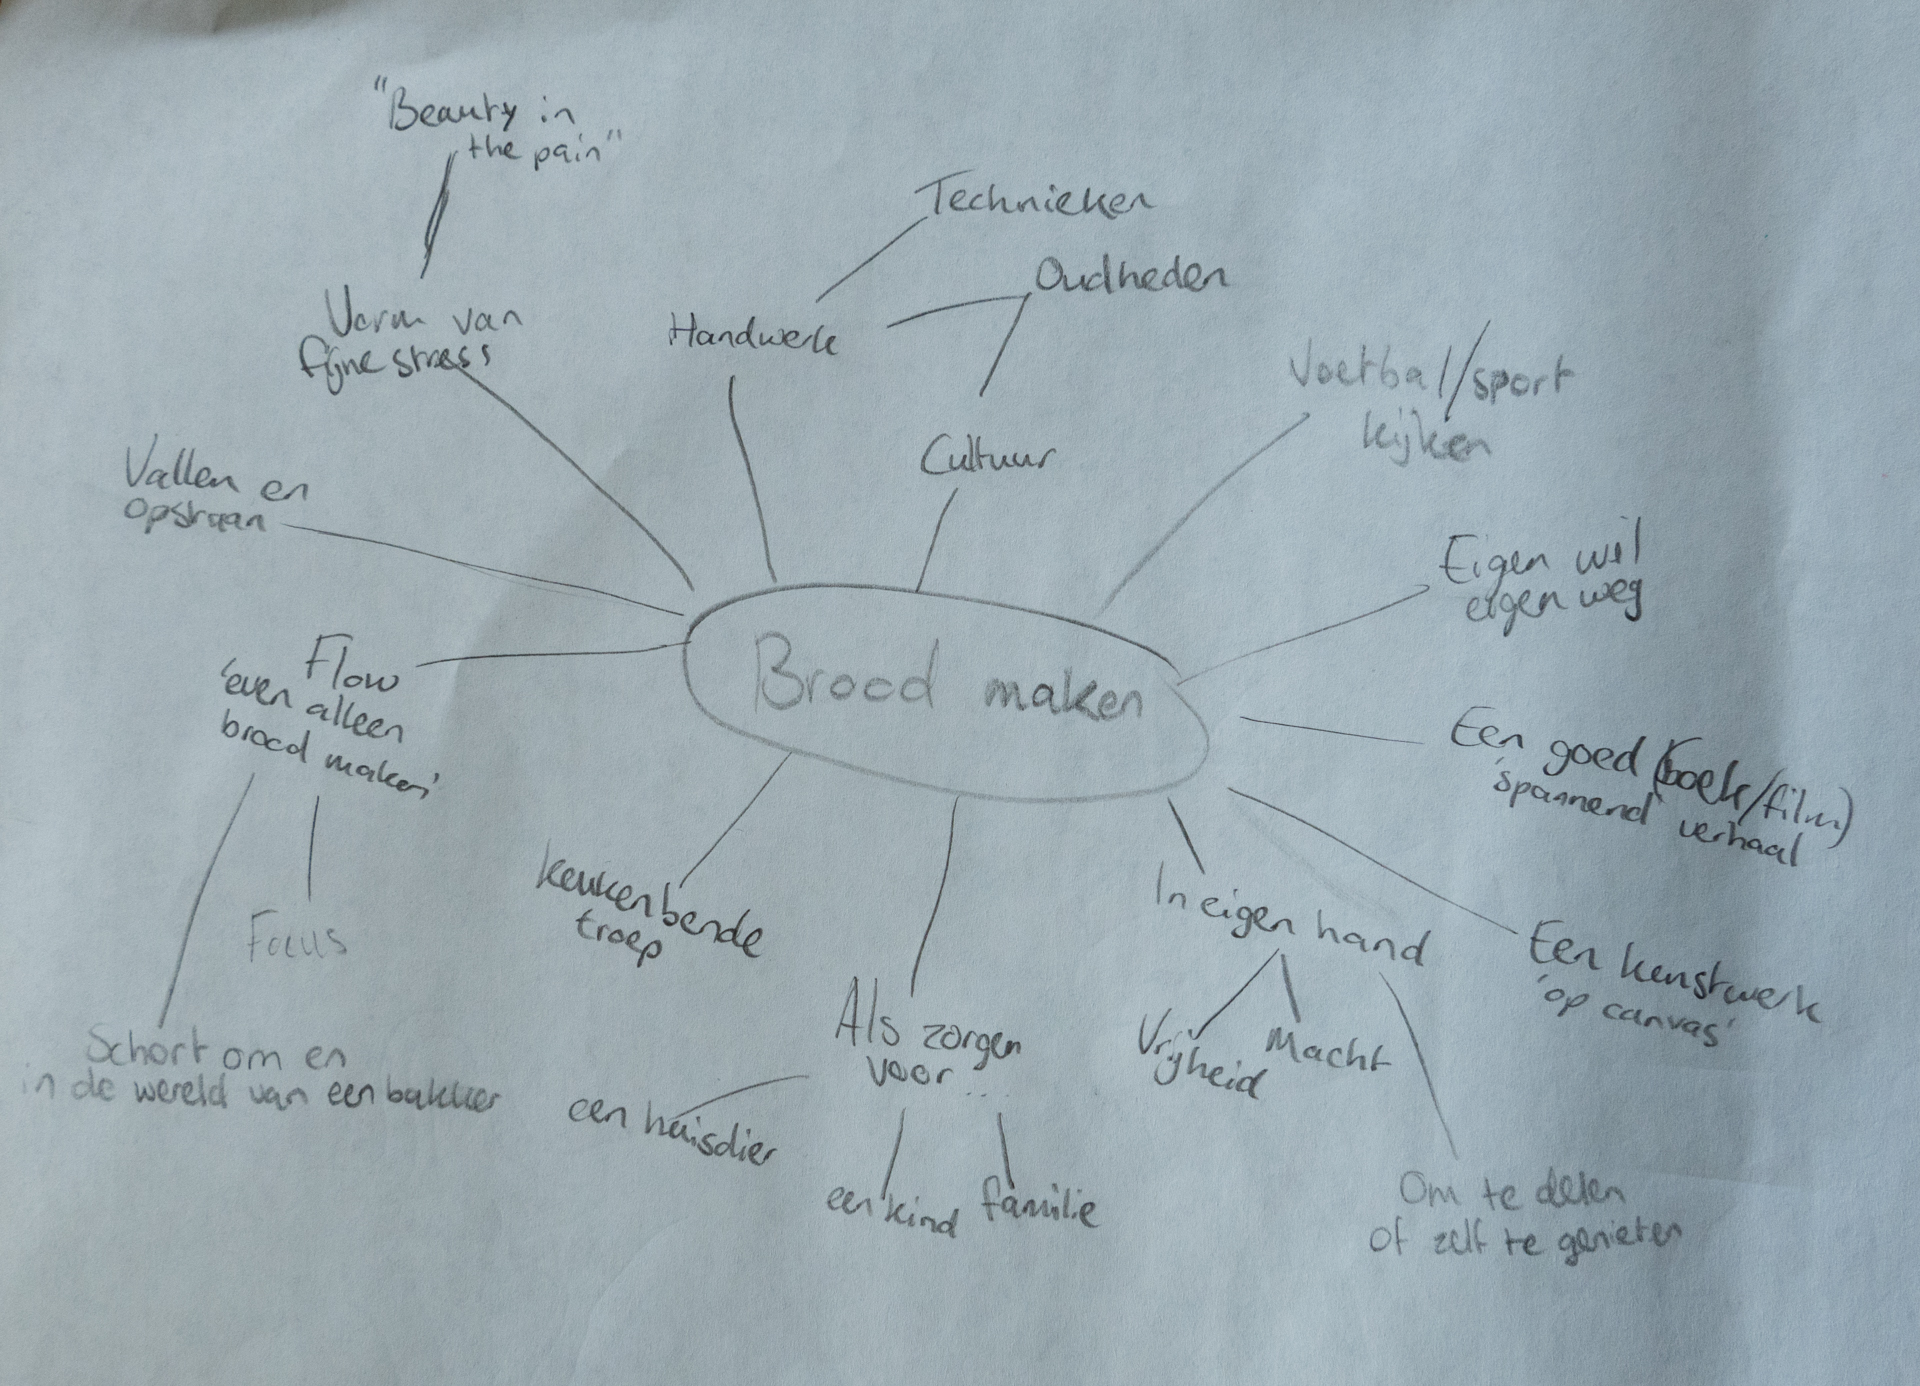 "Beauty in
the pain"
Vorm van
fijne stress
Technieken
Oudheden
Handwerk
Cultuur
Voetbal/sport
kijken
Vallen en
opstaan
Eigen wil
eigen weg
Brood maken
Flow
'even alleen
brood maken'
Een goed (boek/film)
'spannend' verhaal
Focus
Keukenbende
troep
In eigen hand
Een kunstwerk
'op canvas'
Schort om en
in de wereld van een bakker
Als zorgen
voor ...
Vrijheid
Macht
een huisdier
een kind
familie
Om te delen
of zelf te genieten